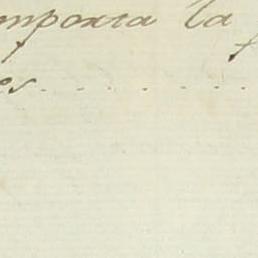 importa la
es. . . . . . .